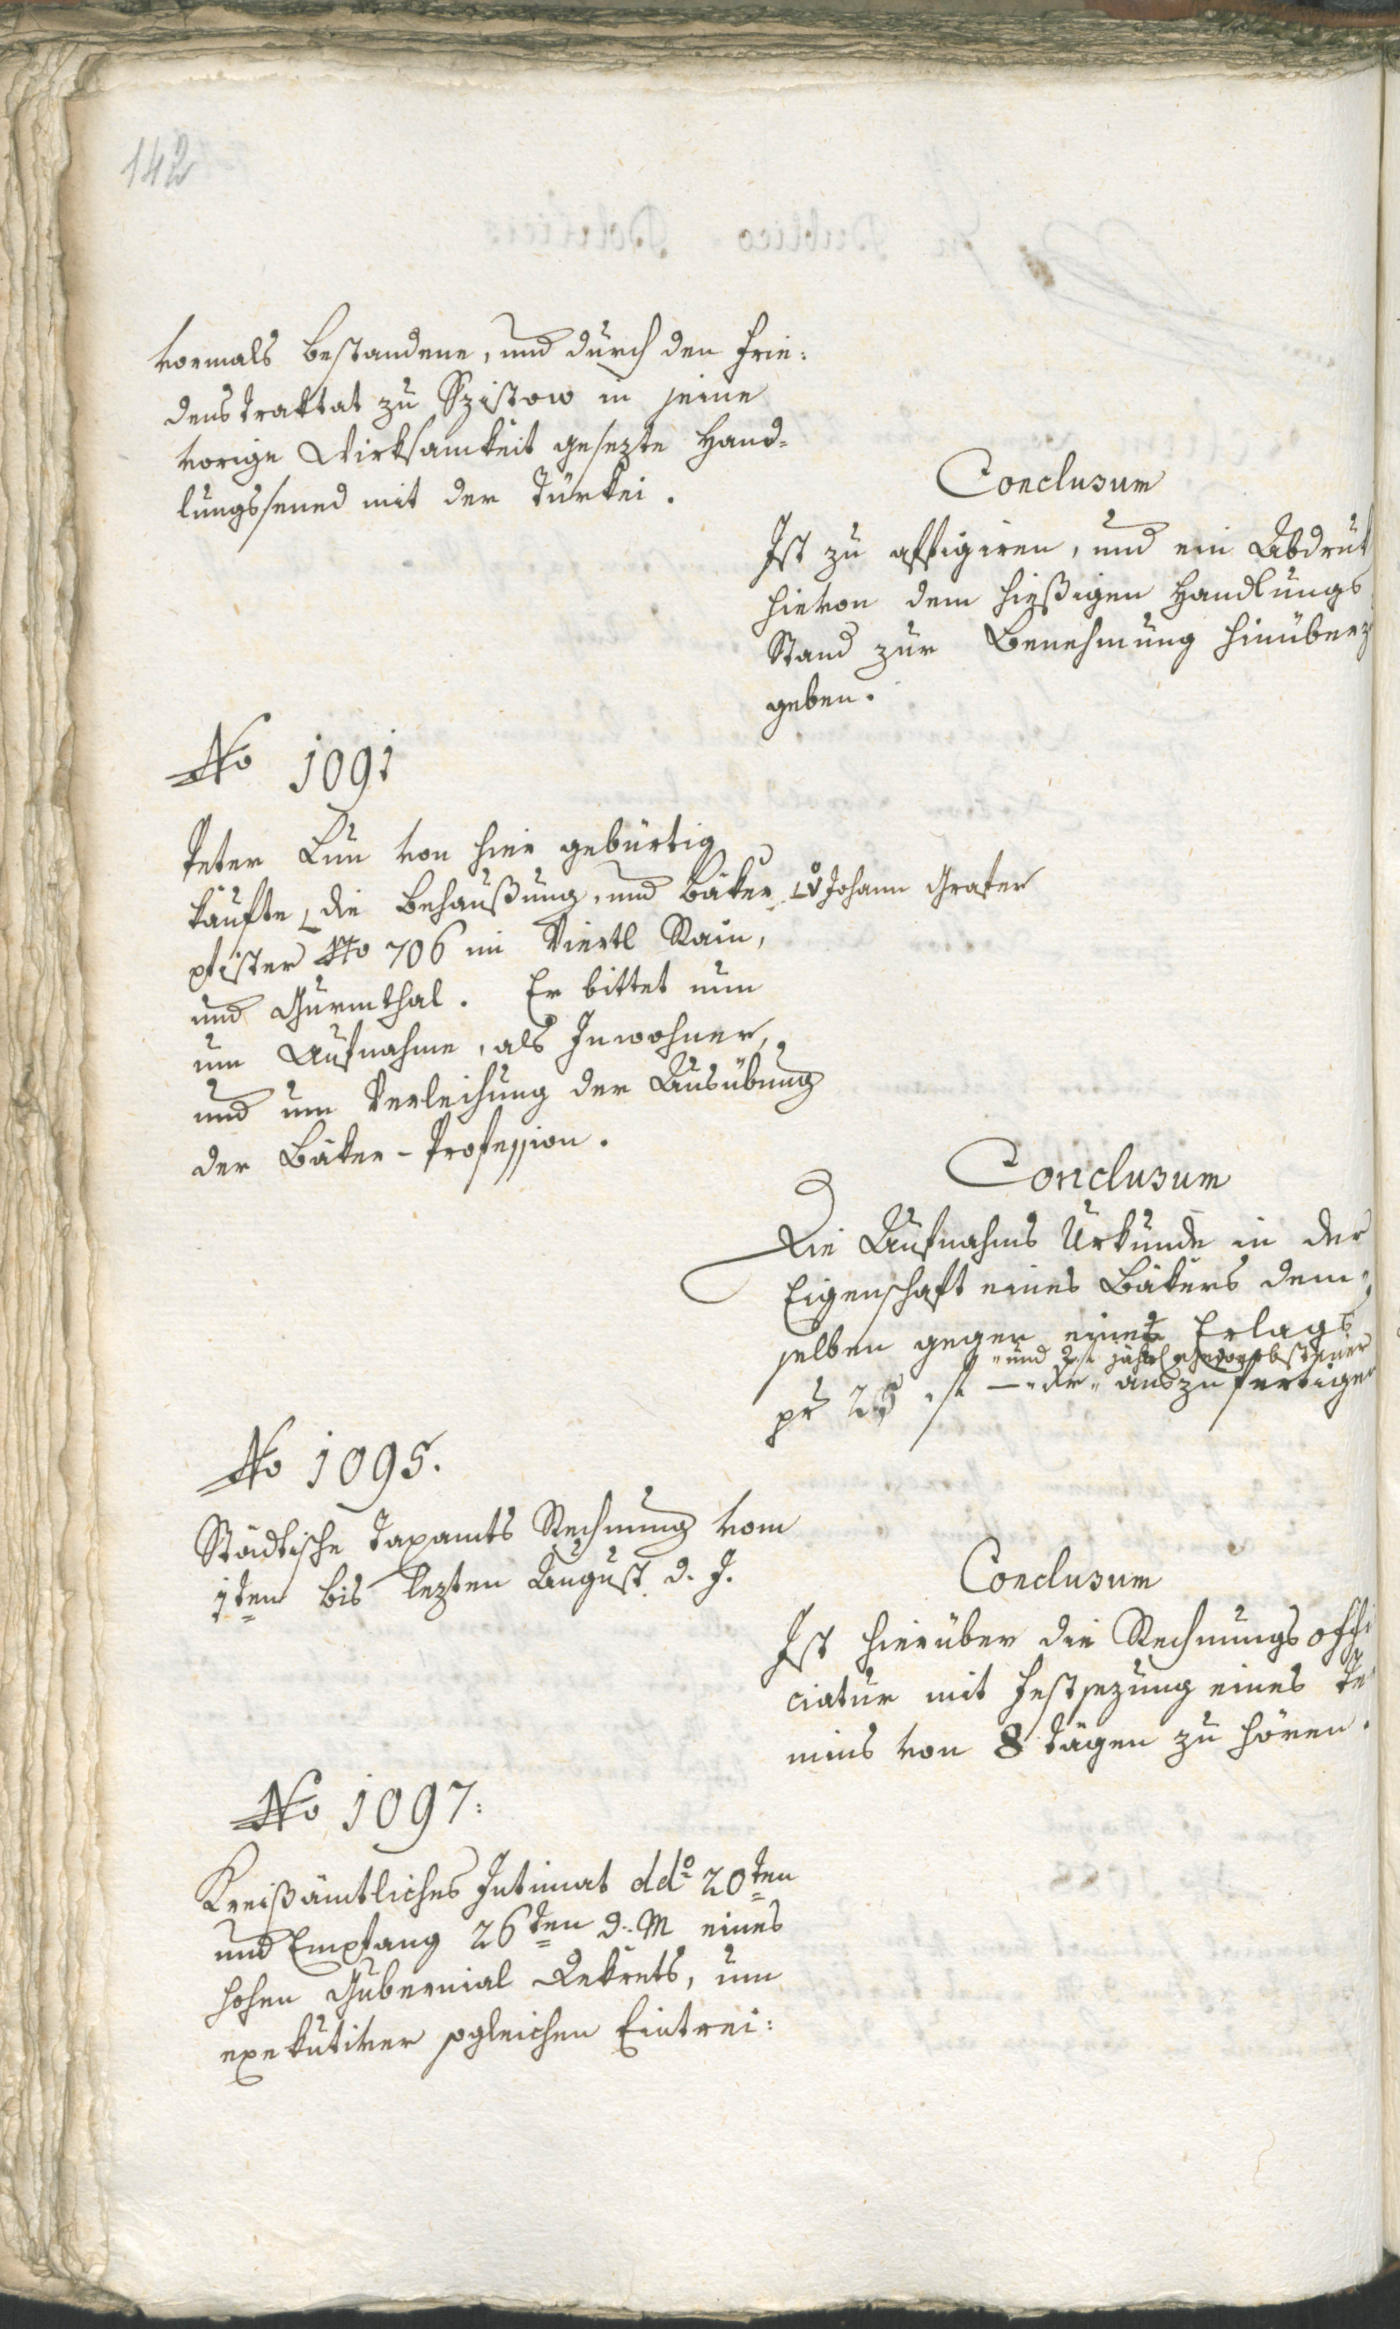 142
vormals bestandene, und durch den Frie:
denstraktat zu Szistow in seine
vorige Wirksamkeit gesezte Hand-
lungssened mit der Türkei.
Conclusum
Ist zu affigiren, und ein Abdruk
hievon dem hießigen Handlungs
Stand zur Benehmung hinüberz
geben.
No 1091
Peter Lun von hier gebürtig
kaufte die Behaußung, und Bäker
v Johann Grater
pfister No 706 im Viertl Rain,
und Gurmthal. Er bittet nun
um Aufnahme, als Inwohner,
und um Verleihung der Ausübung
der Bäker-Profession.
Conclusum
Die Aufnahms Urkunde in der
Eigenschaft eines Bäkers dem-
selben gegen eines Erlags
und 2 f jährl Gewerbsteuer
pr 25 f — Kr auszufertigen
No 1095.
Städtische Taxamts Rechnung vom
1ten bis lezten August d. J.
Conclusum
Ist hierüber die Rechnungs offi
ciatur mit Festsezung eines Te
mins von 8 Tägen zu hören.
No 1097:
Kreißämtliches Intimat ddo 20ten
und Empfang 26ten d. M eines
hohen Gubernial Dekrets, um
exekutiver sogleichen Eintrei: